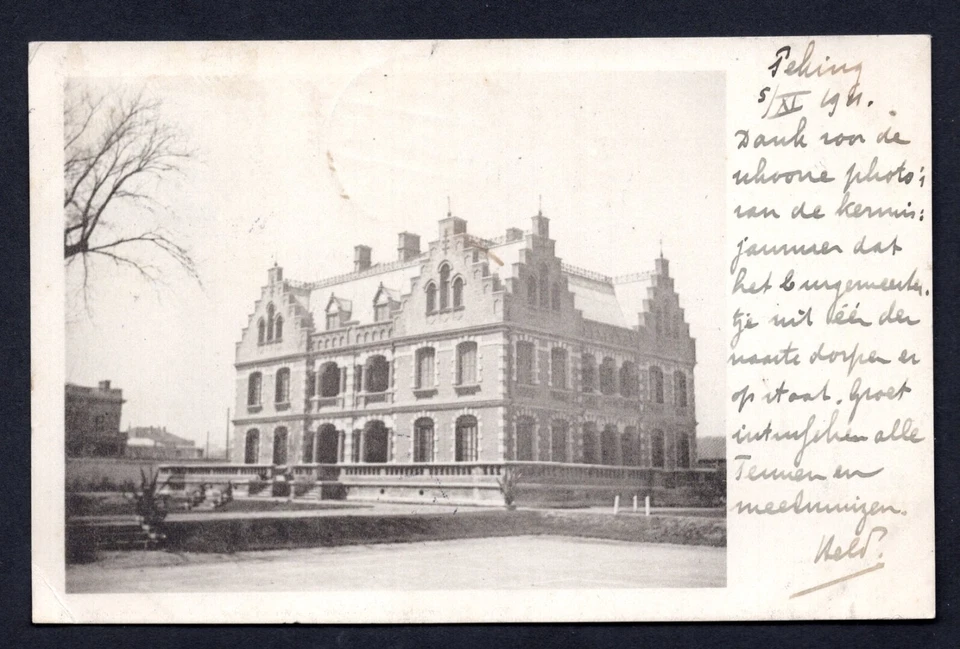 Peking
5/XI 1911.
Dank voor de
schoone photo's
van de kermis:
jammer dat
het burgemeester.
tje uit één der
naaste dorpen er
op staat. Groet
intusschen alle
Tennen en